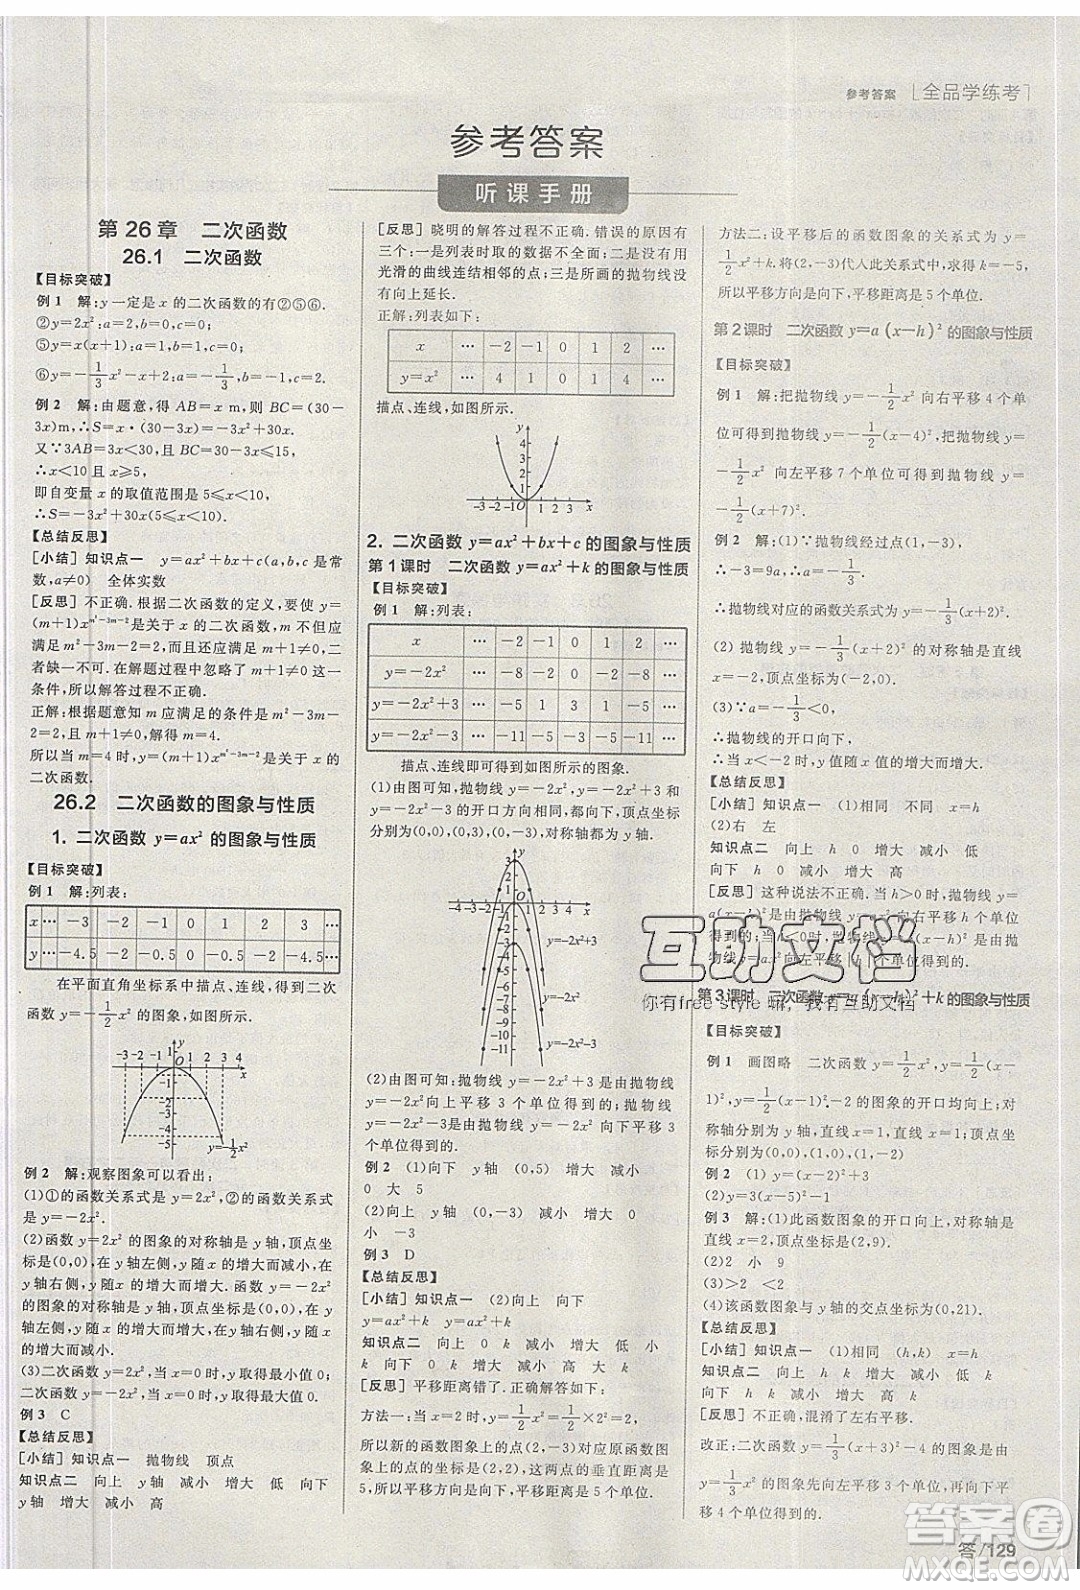 参考答案 [全品学练考]
参考答案
听课手册
第26章 二次函数
26.1 二次函数
【目标突破】
例1 解:y一定是x的二次函数的有②⑤⑥.
②y=2x²:a=2,b=0,c=0.
⑤y=x(x+1):a=1,b=1,c=0.
⑥y=-1/3x²-x+2:a=-1/3,b=-1,c=2.
例2 解:由题意,得AB=x m,则BC=(30-
3x)m,∴S=x·(30-3x)=-3x²+30x.
又∵3AB=3x<30,BC=30-3x≤15,
∴x<10且x≥5,
即自变量x的取值范围是5≤x<10,
∴S=-3x²+30x(5≤x<10).
【总结反思】
[小结] 知识点一 y=ax²+bx+c(a,b,c是常
数,a≠0) 全体实数
[反思] 不正确.根据二次函数的定义,要使y=
(m+1)x^(m²-3m-2)是关于x的二次函数,不但应
满足m²-3m-2=2,而且还应满足m+1≠0,二
者缺一不可.在解题过程中忽略了m+1≠0这一
条件,所以解答过程不正确.
正解:根据题意知m应满足的条件是m²-3m-
2=2,且m+1≠0,解得m=4.
所以当m=4时,y=(m+1)x^(m²-3m-2)是关于x的
二次函数.
26.2 二次函数的图象与性质
1. 二次函数y=ax²的图象与性质
【目标突破】
例1 解:列表:
x … -3 -2 -1 0 1 2 3 …
y … -4.5 -2 -0.5 0 -0.5 -2 -4.5 …
在平面直角坐标系中描点、连线,得到二次
函数y=-1/2x²的图象,如图所示.
例2 解:观察图象可以看出:
(1)①的函数关系式是y=2x²,②的函数关系式
是y=-2x².
(2)函数y=2x²的图象的对称轴是y轴,顶点坐
标是(0,0),在y轴左侧,y随x的增大而减小,在
y轴右侧,y随x的增大而增大.函数y=-2x²
的图象的对称轴是y轴,顶点坐标是(0,0),在y
轴左侧,y随x的增大而增大,在y轴右侧,y随x
的增大而减小.
(3)二次函数y=2x²,当x=0时,y取得最小值0;
二次函数y=-2x²,当x=0时,y取得最大值0.
例3 C
【总结反思】
[小结] 知识点一 抛物线 顶点
知识点二 向上 y轴 减小 增大 低 向下
y轴 增大 减小 高
[反思] 晓明的解答过程不正确.错误的原因有
三个:一是列表时取的数据不全面;二是没有用
光滑的曲线连结相邻的点;三是所画的抛物线
没有向上延长.
正解:列表如下:
x … -2 -1 0 1 2 …
y=x² … 4 1 0 1 4 …
描点、连线,如图所示.
2. 二次函数y=ax²+bx+c的图象与性质
第1课时 二次函数y=ax²+k的图象与性质
【目标突破】
例1 解:列表:
x … -2 -1 0 1 2 …
y=-2x² … -8 -2 0 -2 -8 …
y=-2x²+3 … -5 1 3 1 -5 …
y=-2x²-3 … -11 -5 -3 -5 -11 …
描点、连线即可得到如图所示的图象.
(1)由图可知,抛物线y=-2x²,y=-2x²+3和
y=-2x²-3的开口方向都向下,顶点坐标
分别为(0,0),(0,3),(0,-3),对称轴都为y轴.
(2)由图可知:抛物线y=-2x²+3是由抛物线
y=-2x²向上平移3个单位得到的;抛物线
y=-2x²-3是由抛物线y=-2x²向下平移3个
单位得到的.
例2 (1)向下 y轴 (0,5) 增大 减小
0 大 5
(2)向上 y轴 (0,-3) 减小 增大 0
小 -3
例3 D
【总结反思】
[小结] 知识点一 (2)向上 向下
y=ax²+k y=ax²-k
知识点二 向上 0 k 减小 增大 低 小
k 向下 0 k 增大 减小 高 大 k
[反思] 平移距离错了.正确解答如下:
方法一:当x=2时,y=1/2x²=1/2×2²=2.
所以新的函数图象上的点(2,-3)对应原函数图
象上的点(2,2),这两点的垂直距离是
5,所以平移的距离是5个单位.
方法二:设平移后的函数图象的关系式为y=
1/2x²+k.将(2,-3)代入此关系式中,求得k=-5,
所以图象向下平移,平移距离是5个单位.
第2课时 二次函数y=a(x-h)²的图象与性质
【目标突破】
例1 解:把抛物线y=-1/2x²向右平移4个单
位可得到抛物线y=-1/2(x-4)²,把抛物线y=
-1/2x²向左平移7个单位可得到抛物线y=
-1/2(x+7)².
例2 解:(1)∵抛物线经过点(1,-3),
∴-3=9a,∴a=-1/3,
∴抛物线对应的函数关系式为y=-1/3(x+2)².
(2)抛物线y=-1/3(x+2)²的对称轴是直线
x=-2,顶点坐标为(-2,0).
(3)∵a=-1/3<0,
∴抛物线的开口向下,
∴当x<-2时,y随x的增大而增大.
【总结反思】
[小结] 知识点一 (1)相同 不同 x=h
(2)右 左
知识点二 向上 h 0 增大 减小 低
向下 h 0 减小 增大 高
[反思] 这种说法不正确.当h>0时,抛物线y=
a(x-h)²是由抛物线y=ax²向右平移h个单位
得到的;当h<0时,抛物线y=a(x-h)²是由抛
物线y=ax²向左平移|h|个单位得到的.
第3课时 二次函数y=a(x-h)²+k的图象与性质
【目标突破】
例1 画图略 二次函数y=1/2x²,y=1/2(x-
1)²,y=1/2(x-1)²-2的图象的开口均向上;对
称轴分别为y轴,直线x=1,直线x=1;顶点坐
标分别为(0,0),(1,0),(1,-2)
例2 (1)y=(x-2)²+2
(2)y=3(x-2)²-1
例3 解:(1)此函数图象的开口向上,对称轴为
直线x=2,顶点坐标为(2,9).
(2)2 小 9
(3)>2 <2
(4)该函数图象与y轴的交点坐标为(0,21).
【总结反思】
[小结] 知识点一 (1)相同 (h,k) x=h
知识点二 向上 减小 增大 低 小 k
向下 增大 减小 高 大 k
[反思] 不正确,混淆了左右平移.
改正:二次函数y=-1/3(x+3)²-4的图象是由
y=-1/3x²的图象先向左平移3个单位,再向下平
移4个单位得到的.
互助文档
你有free style嘛,我有互助文档
答案圈
MXQE.COM
答/129